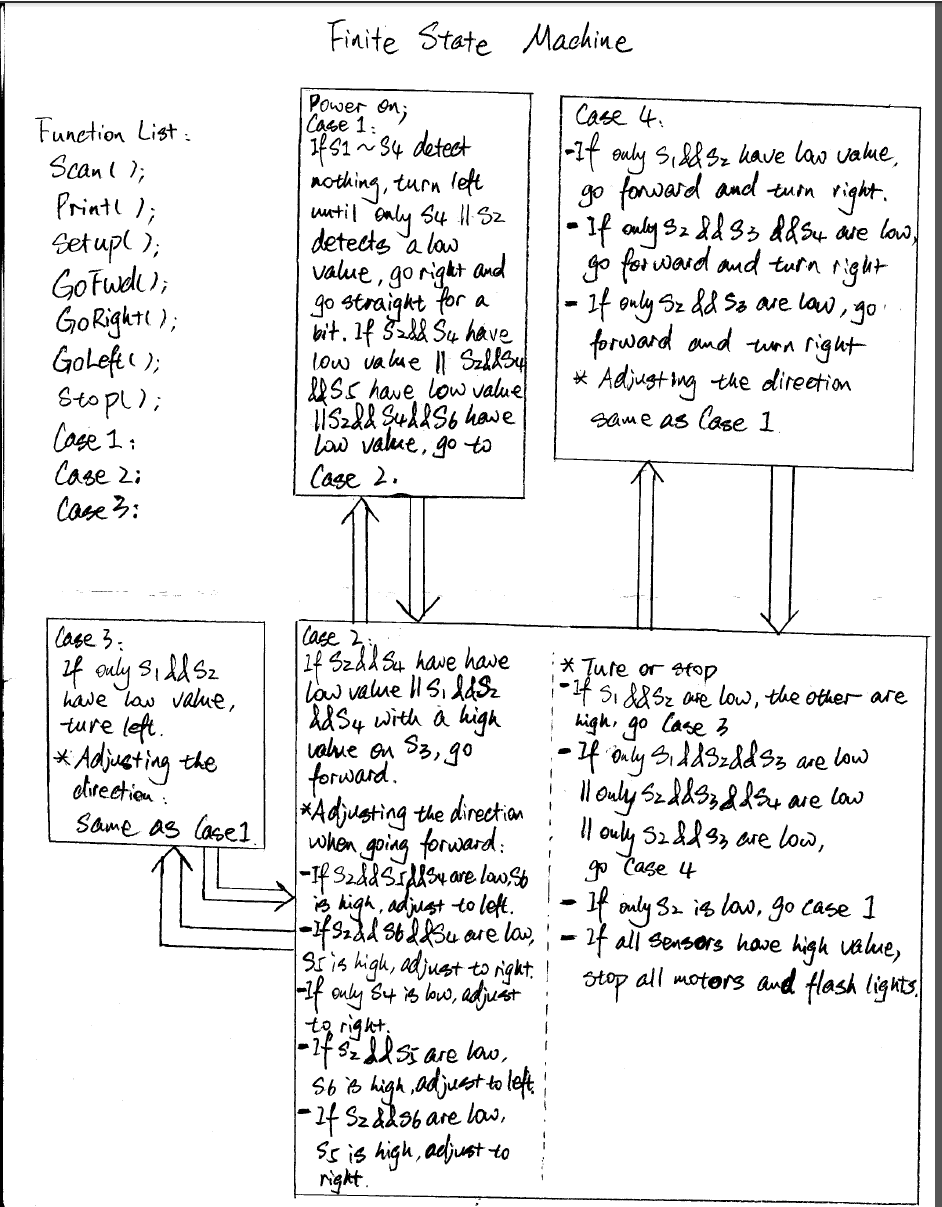 Finite State Machine
Function List:
Scan( );
Print( );
Setup( );
GoFwd( );
GoRight( );
GoLeft( );
Stop( );
Case 1:
Case 2:
Case 3:
Power on;
Case 1:
If S1 ~ S4 detect
nothing, turn left
until only S4 || S2
detects a low
value, go right and
go straight for a
bit. If S2&& S4 have
low value || S2&&S4
&&S5 have low value
||S2&& S4&&S6 have
low value, go to
Case 2.
Case 4:
-If only S1&&S2 have low value,
go forward and turn right.
- If only S2 && S3 &&S4 are low,
go forward and turn right
- If only S2 && S3 are low, go
forward and turn right
* Adjusting the direction
same as Case 1
Case 3:
If only S1&&S2
have low value,
ture left.
* Adjusting the
direction:
Same as Case1
Case 2:
If S2&&S4 have have
low value || S1&&S2
&&S4 with a high
value on S3, go
forward.
*Adjusting the direction
when going forward:
-If S2&&S5&&S4 are low,S6
is high, adjust to left.
-If S2&& S6&&S4 are low,
S5 is high, adjust to right.
-If only S4 is low, adjust
to right.
-If S2&&S5 are low,
S6 is high, adjust to left.
- If S2&&S6 are low,
S5 is high, adjust to
right.
* Ture or stop
-If S1&&S2 are low, the other are
high, go Case 3
- If only S1&&S2&&S3 are low
|| only S2&&S3&&S4 are low
|| only S2&&S3 are low,
go Case 4
- If only S2 is low, go case 1
- If all sensors have high value,
stop all motors and flash lights.